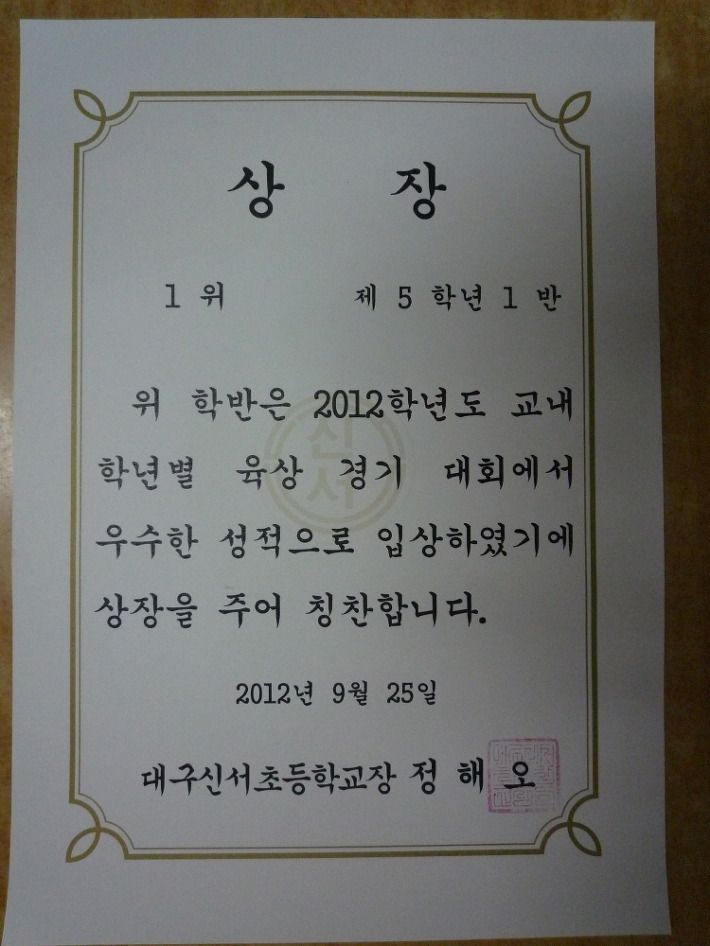 상 장
1 위 제 5 학년 1 반
위 학반은 2012학년도 교내
신서
학년별 육상 경기 대회에서
우수한 성적으로 입상하였기에
상장을 주어 칭찬합니다.
2012년 9월 25일
대구신서초등학교장 정 해 오